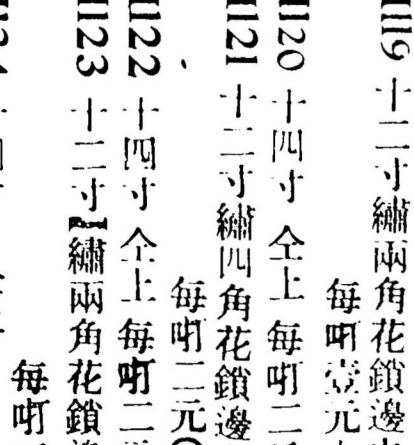 1119 十二寸繡兩角花鎖邊
每吋壹元
1120 十四寸 仝上 每吋二
1121 十二寸繡四角花鎖邊
每吋二元
1122 十四寸 仝上 每吋二
1123 十二寸繡兩角花鎖
每吋